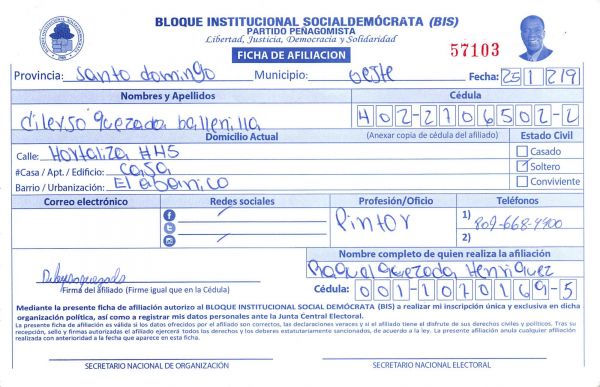 BLOQUE INSTITUCIONAL SOCIALDEMÓCRATA (BIS)
PARTIDO PEÑAGOMISTA
Libertad, Justicia, Democracia y Solidaridad
FICHA DE AFILIACION
57103
Provincia: Santo domingo Municipio: oeste Fecha: 25 1 219
Nombres y Apellidos Cédula
dilerso quezada ballenilla 402-2706502-2
Domicilio Actual (Anexar copia de cédula del afiliado) Estado Civil
Calle: Hortaliza #45 Casado
#Casa / Apt. / Edificio: casa Soltero
Barrio / Urbanización: El abanico Conviviente
Correo electrónico Redes sociales Profesión/Oficio Teléfonos
Pintor 1) 809-668-4900
2)
Nombre completo de quien realiza la afiliación
Raquel quezada Henriquez
Firma del afiliado (Firme igual que en la Cédula) Cédula: 001-1070169-5
Mediante la presente ficha de afiliación autorizo al BLOQUE INSTITUCIONAL SOCIAL DEMÓCRATA (BIS) a realizar mi inscripción única y exclusiva en dicha
organización política, así como a registrar mis datos personales ante la Junta Central Electoral.
La presente ficha de afiliación es válida si los datos ofrecidos por el afiliado son correctos, las declaraciones veraces y si el afiliado tiene el disfrute de sus derechos civiles y políticos. Tras su
recepción, sello y firmas autorizadas el afiliado ejercerá todos los derechos y los deberes estatutariamente sancionados, de acuerdo a la ley. La presente afiliación anula cualquier afiliación
realizada con anterioridad a la fecha que aparece en esta ficha.
SECRETARIO NACIONAL DE ORGANIZACIÓN SECRETARIO NACIONAL ELECTORAL